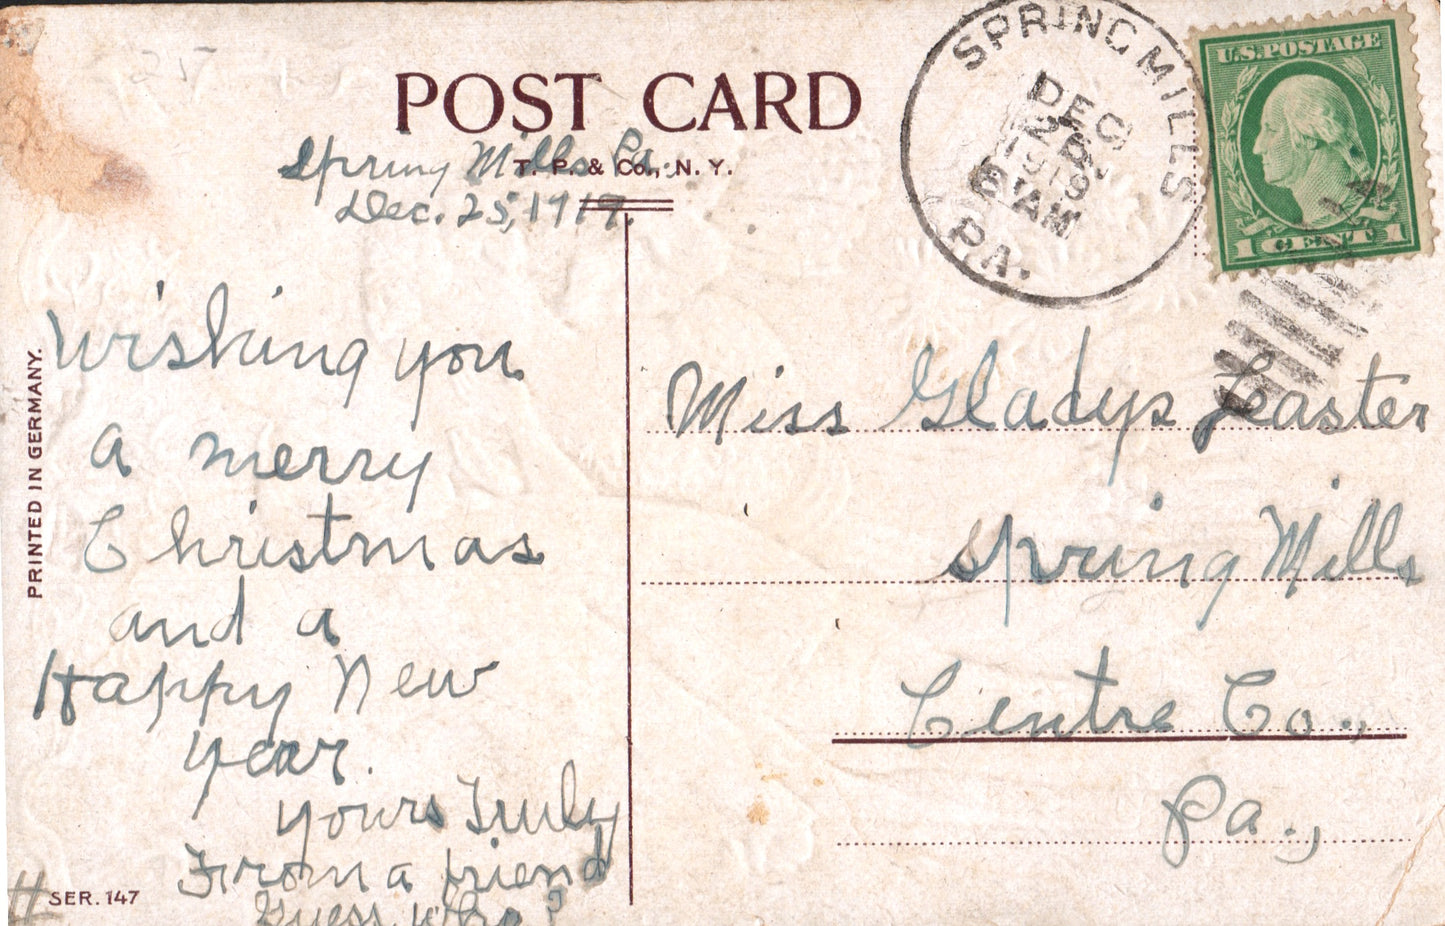 POST CARD
T. P. & Co., N. Y.
Spring Mills Pa.
Dec. 25, 1919.
Wishing you
a merry
Christmas
and a
Happy New
year.
yours Truly
From a friend
Guess Who?
PRINTED IN GERMANY.
SER. 147
SPRING MILLS
DEC
26
1919
6 AM
PA.
U.S. POSTAGE
1 CENT 1
Miss Gladys Leaster
Spring Mills
Centre Co.,
Pa.,